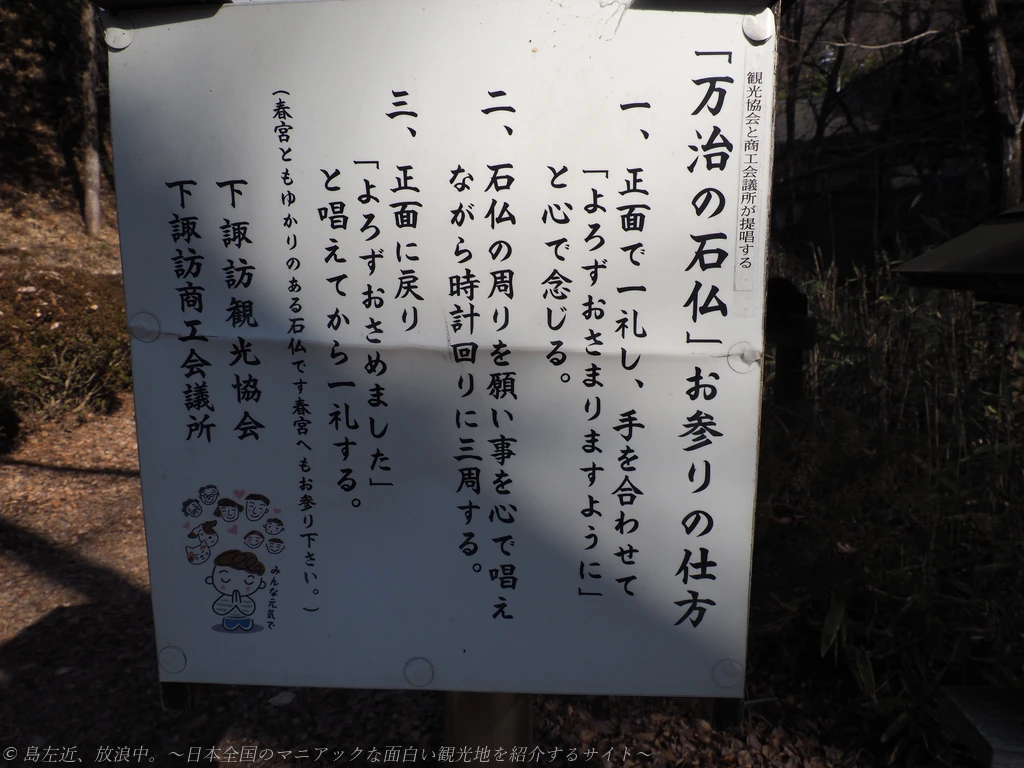 観光協会と商工会議所が提唱する
「万治の石仏」お参りの仕方
一、正面で一礼し、手を合わせて
「よろずおさまりますように」
と心で念じる。
二、石仏の周りを願い事を心で唱え
ながら時計回りに三周する。
三、正面に戻り
「よろずおさめました」
と唱えてから一礼する。
(春宮ともゆかりのある石仏です春宮へもお参り下さい。)
下諏訪観光協会
下諏訪商工会議所
みんな元気で
© 島左近、放浪中。～日本全国のマニアックな面白い観光地を紹介するサイト～